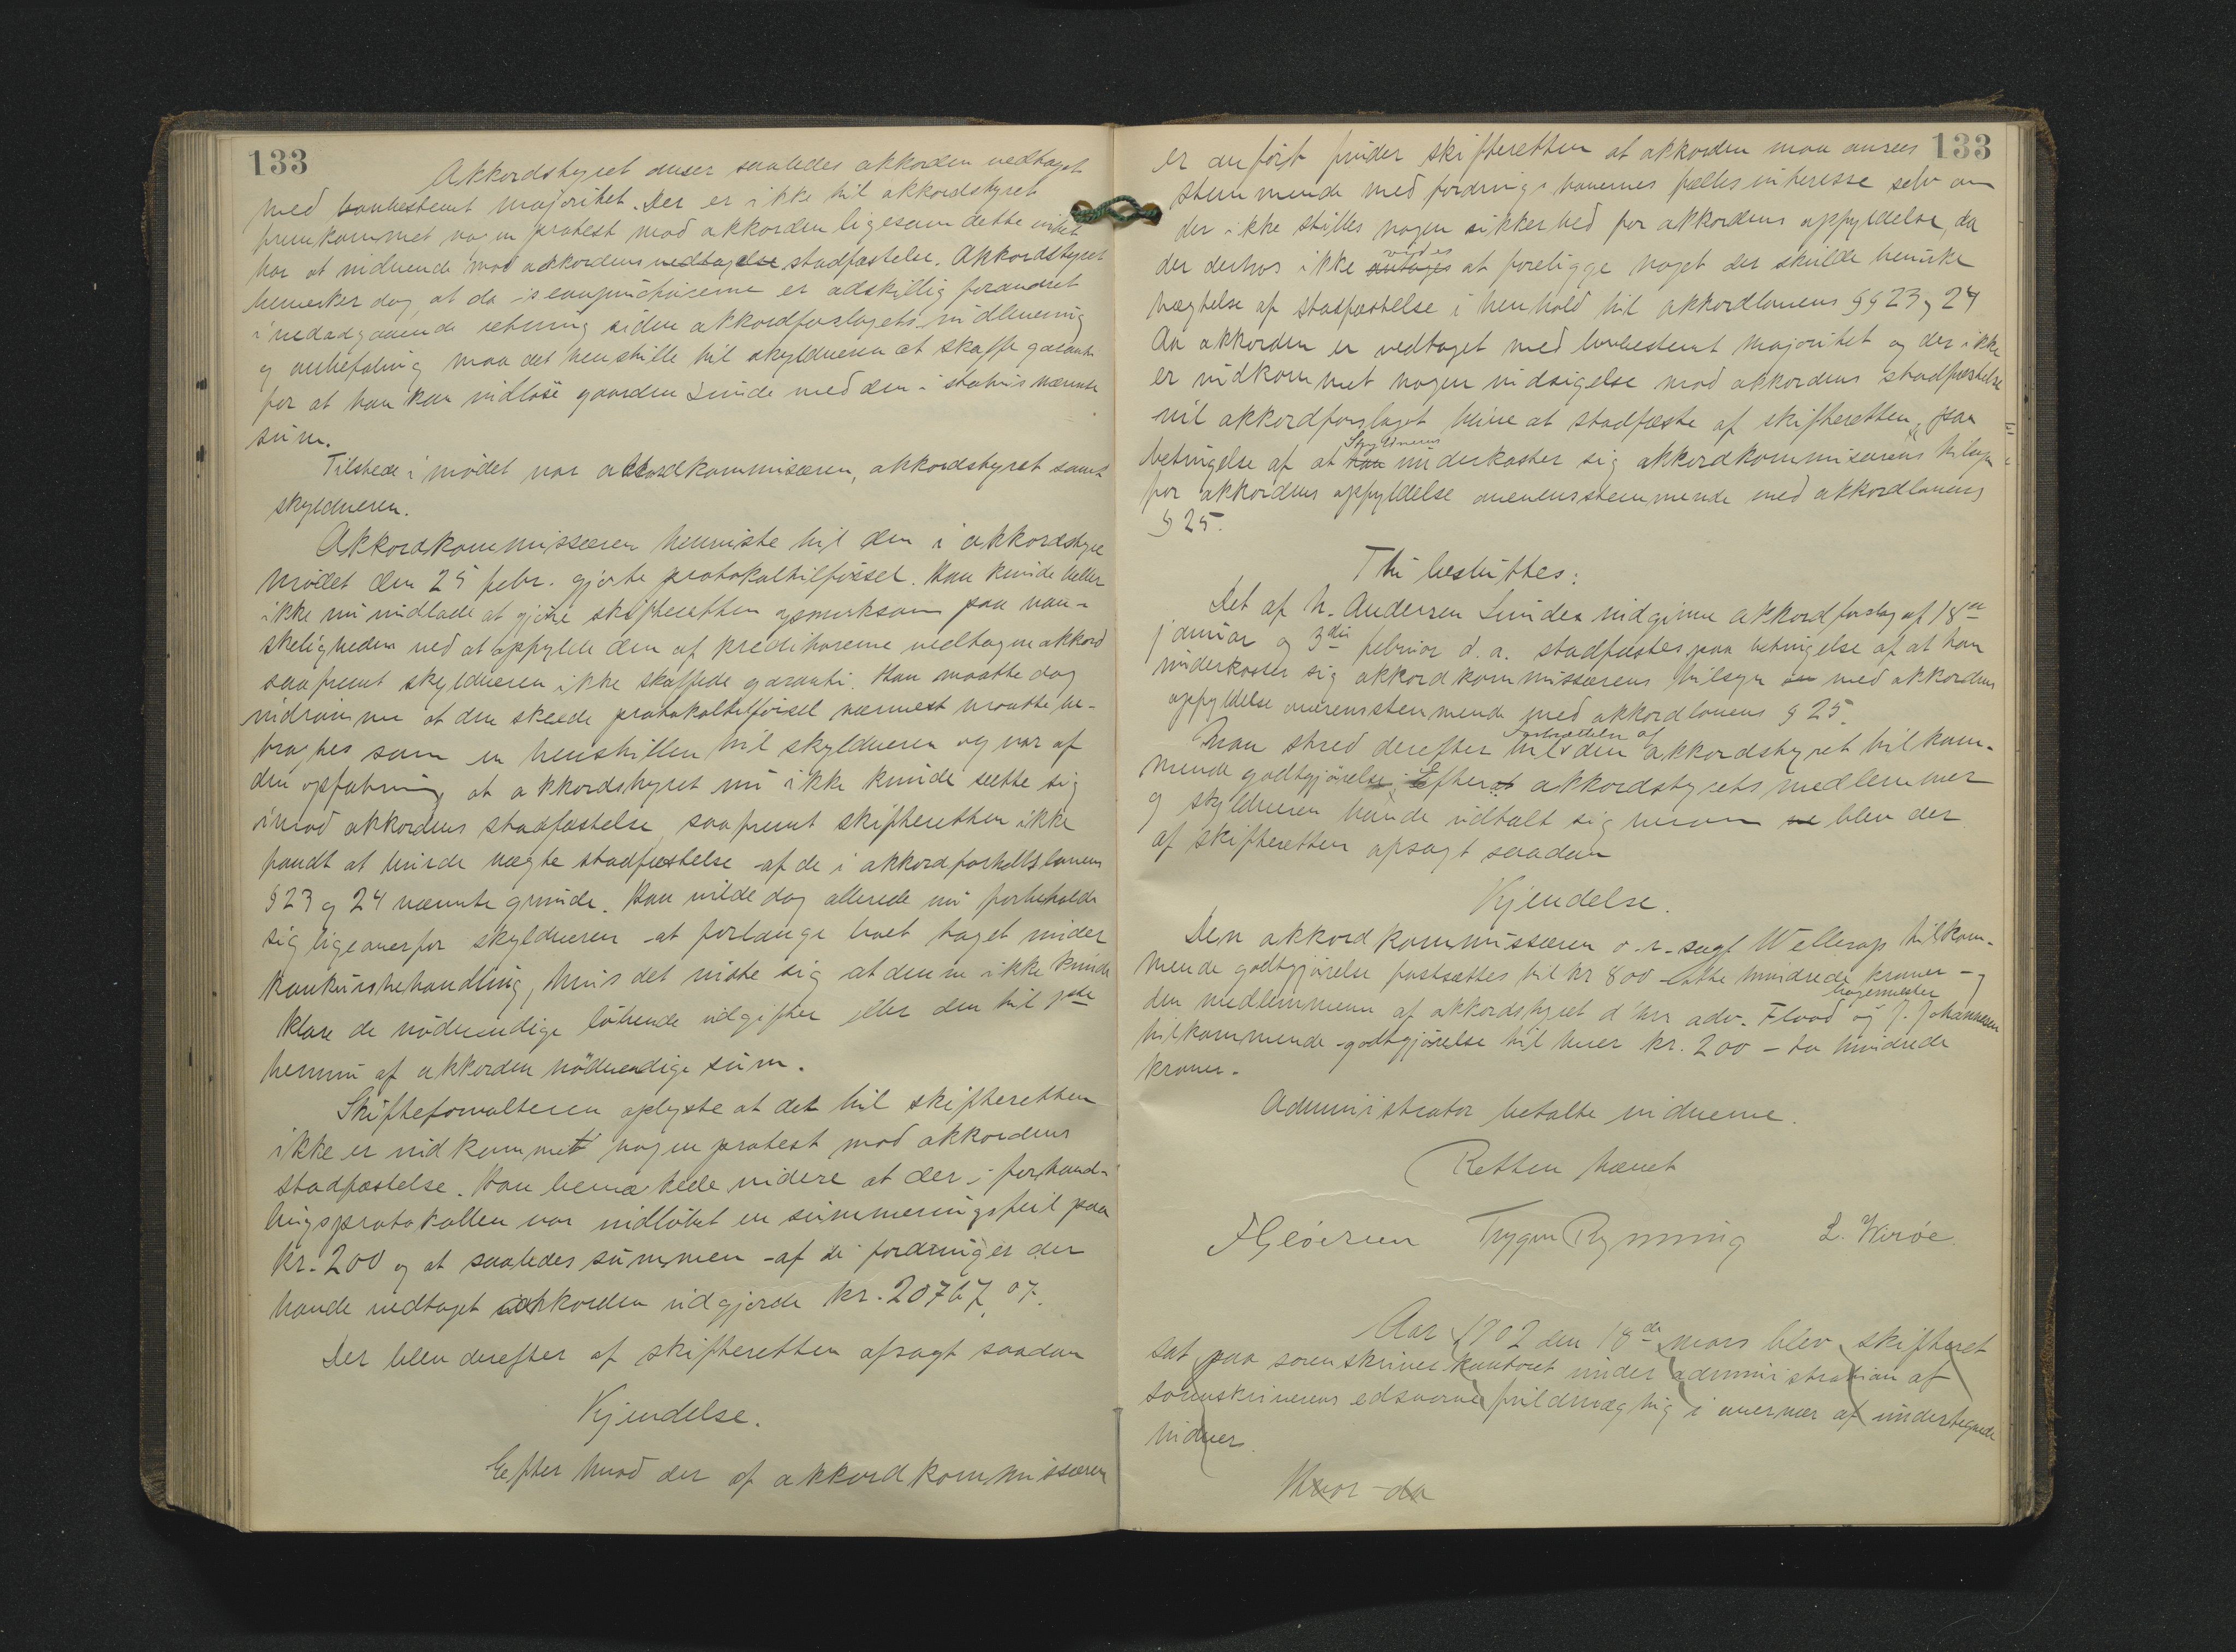 133
Akkordstyret anser saaledes akkorden vedtaget
med lovbestemt majoritet. Der er ikke til akkordstyret
fremkommet nogen protest mod akkorden ligesom dette intet
har at indvende mod akkordens vedtagelse stadfæstelse. Akkordstyret
bemerker dog, at da iskonjuncturerne er adskillig forandret
i nedadgaaende retning siden akkordforslagets indlevering
og anbefaling maa det henstille til skyldneren at skaffe garanti
for at han kan indløse gaarden Sunde med den i status nævnte
sum.
Tilstede i mødet var akkordkommisæren, akkordstyret samt
skyldneren.
Akkordkommissæren henviste til den i akkordstyre
mødet den 25 febr. gjorte protokoltilførsel. Han kunde heller
ikke nu undlade at gjøre skifteretten opmerksom paa van-
skeligheden ved at oppylde den af kreditorerne vedtagne akkord
saafremt skyldneren ikke skaffede garanti. Han maatte dog
indrømme at den skeede protokoltilførsel nærmest maatte be-
tragtes som en henstillen til skyldneren og var af
den opfatning at akkordstyret nu ikke kunde sætte sig
imod akkordens stadfæstelse saafremt skifteretten ikke
fandt at burde nægte stadfæstelse af de i akkordforholdslovens
§ 23 og 24 nævnte grunde. Han vilde dog allerede nu forbeholde
sig ligeoverfor skyldneren at forlange boet taget under
konkursbehandling, hvis det viste sig at denne ikke kunde
klare de nødvendige løbende udgifter eller den til 1ste
termin af akkorden nødvendige sum.
Skifteforvalteren oplyste at det til skifteretten
ikke er indkommet nogen protest mod akkordens
stadfæstelse. Han bemærkede videre at der i forhand-
lingsprotokollen var indløbet en summeringsfeil paa
kr. 200 og at saaledes summen af de fordringer der
havde vedtaget akkorden udgjorde kr. 20767,07.
Der blev derefter af skifteretten afsagt saadan
Kjendelse.
Efter hvad der af akkordkommissæren
133
er anført finder skifteretten at akkorden maa ansees
stemmende med fordringshavernes fælles interesse selv om
der ikke stilles nogen sikkerhed for akkordens oppyldelse, da
vides
der derhos ikke antages at foreligge noget der skulde bevirke
nægtelse af stadfæstelse i henhold til akkordlovens §§ 23 og 24
Da akkorden er vedtaget med lovbestemt majoritet og der ikke
er indkommet nogen indsigelse mod akkordens stadfæstelse
vil akkordforslaget blive at stadfæste af skifteretten paa
Skyldneren
betingelse af at han underkaster sig akkordkommissærens tilsyn
for akkordens oppyldelse overensstemmende med akkordlovens
§ 25.
Thi besluttes:
Det af N. Andersen Sunde indgivne akkordforslag af 18de
januar og 3die februar d. a. stadfæstes paa betingelse af at han
underkaster sig akkordkommissærens tilsyn med akkordens
oppyldelse overensstemmende med akkordlovens § 25.
Fastsættelsen af
Man skred derefter til den akkordstyret tilkom-
mende godtgjørelse. Efter at akkordstyrets medlemmer
og skyldneren havde udtalt sig herom blev der
af skifteretten afsagt saadan
Kjendelse.
Den akkordkommissæren o.r. sagf. Wellerop tilkom-
mende godtgjørelse fastsættes til kr 800 – otte hundrede kroner – og
den medlemmerne af akkordstyret d'hrr adv. Flood og J. Johannesen
tilkommende godtgjørelse til hver kr. 200 – to hundrede
kroner.
Administrator betalte vidnerne.
Retten hævet
Trygve Rynning
Aar 1902 den 18de mars blev skifteret
sat paa sorenskriverkontoret under administration af
sorenskriverens edsvorne fuldmægtig i overvær af undertegnede
vidner.
Hvor da